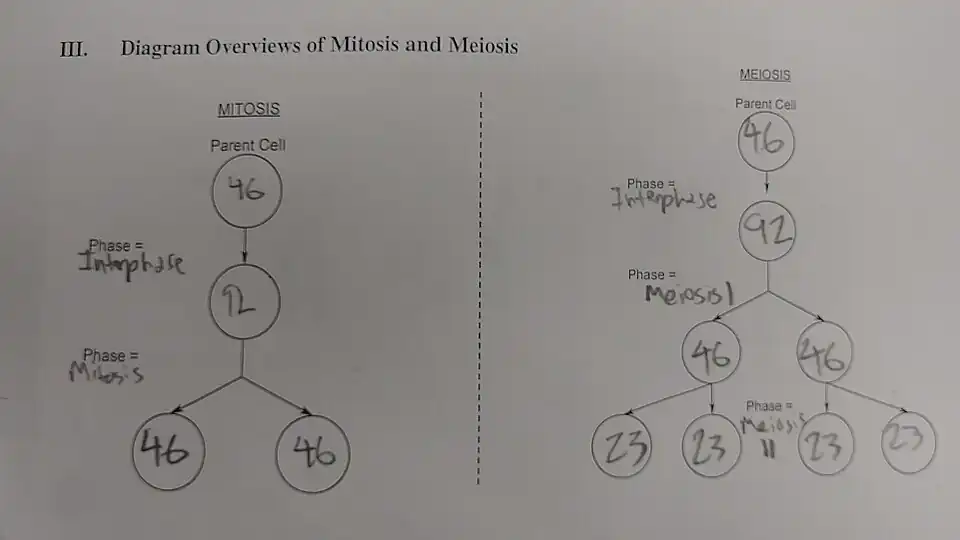 III. Diagram Overviews of Mitosis and Meiosis
MITOSIS
Parent Cell
46
Phase =
Interphase
92
Phase =
Mitosis
46 46
MEIOSIS
Parent Cell
46
Phase =
Interphase
92
Phase =
Meiosis I
46 46
Phase =
Meiosis
II
23 23 23 23